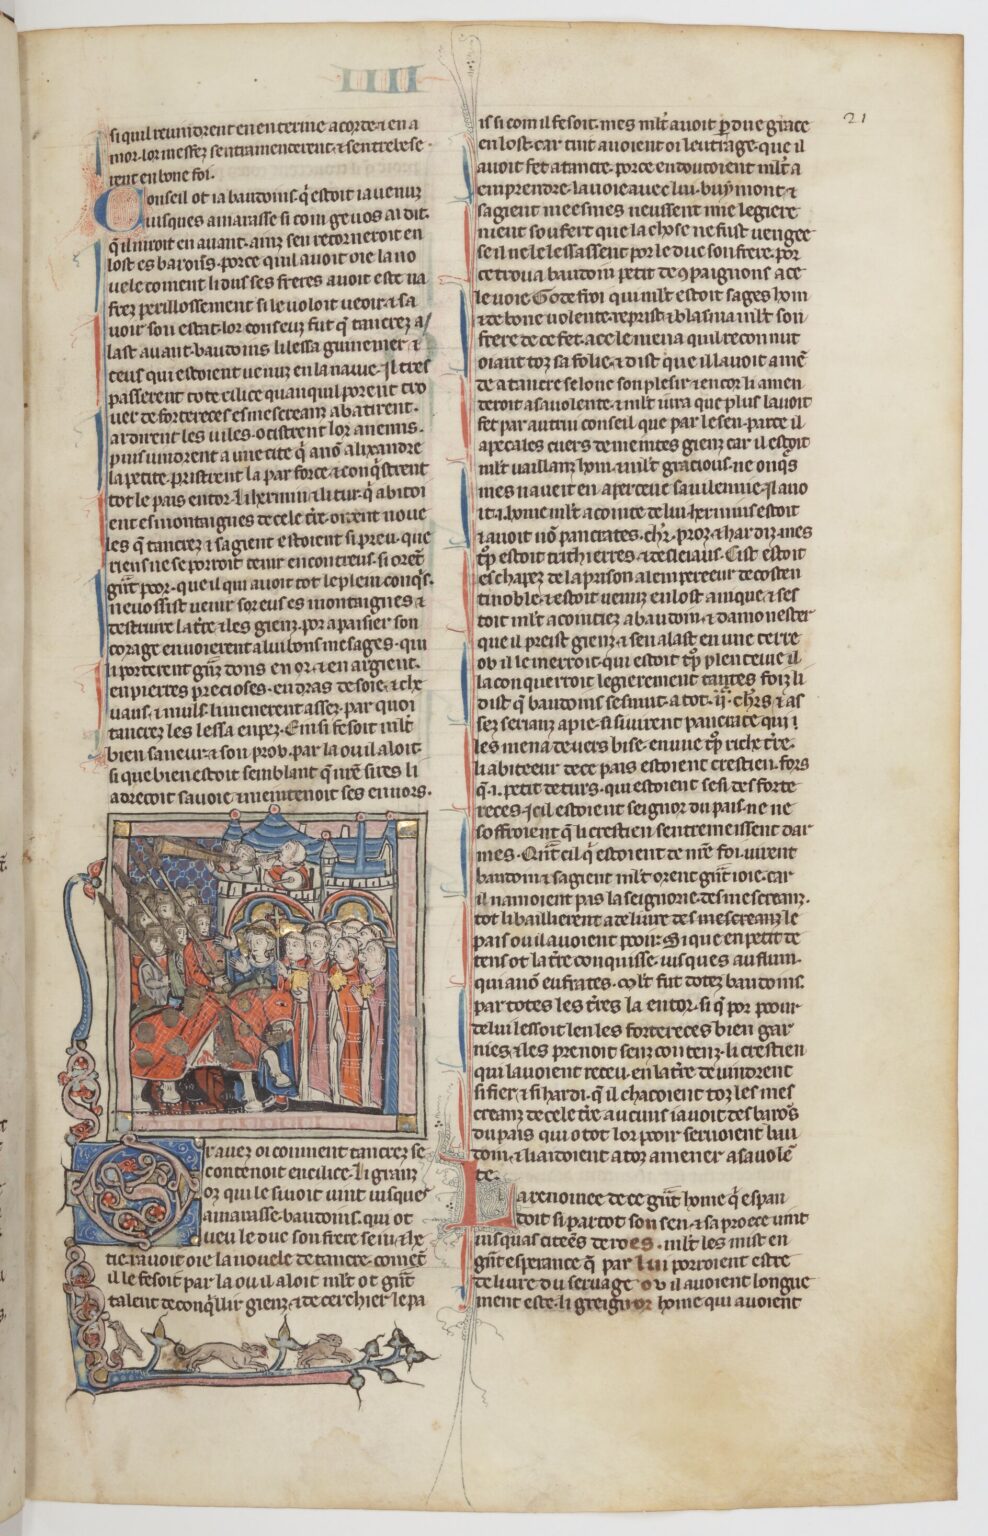 IIII
21
si quil reuindrent en enterine acorde ⁊ en a
mor. lor mesfez sentramenderent ⁊ sentrebese
rent en bone foi.
Conseil ot ia baudoins. q̃ estoit ia uenuz
iusques amarasse si com ge uos ai dit.
q̃ il niroit en auant. ainz sen retorneroit en
lost es barons. porce quil auoit oie la no
uele coment li dus ses freres auoit este na
frez perillossement si le uoloit ueoir. ⁊ sa
uoir son estat. lor conseuz fut q̃ tancrez a
last auant. baudoins li lessa guinemer ⁊
ceus qui estoient uenuz en la nauie. Il tres
passerent tote cilice quanquil porent tro
uer de fortereces es mescreanz abatirent.
ardirent les uiles. ocistrent lor anemis.
puis uindrent a une cite q̃ a nõ alixandre
la petite. pristrent la par force ⁊ conq̃strent
tot le pais entor. li hermin ⁊ li tur. q̃ abitoi
ent es montaignes de cele tr̃e. oirent nove
les q̃ tancrez ⁊ sagient estoient si preu. que
riens ne se porroit tenir encontreus. si orẽt
gñt poor. que il qui auoit tot le plein conq̃s.
ne uossist uenir sor eus es montaignes ⁊
destruire la tr̃e ⁊ les gienz. por apaisier son
corage enuoierent a lui bons mesages. qui
li porterent gñz dons en or. ⁊ en argient.
en pierres precioses. en dras de soie. ⁊ che
uaus. ⁊ muls. li menerent assez. par quoi
tancrez les lessa en pez. Einsi fesoit ml̃t
bien saneur ⁊ son prob. par la ou il aloit.
si que bien estoit semblant q̃ nr̃e sires li
adrecoit sa uoie. ⁊ meintenoit ses enuors.
Or auez oi coment tancrez se
contenoit en cilice. li granz
oz qui le siuoit uint iusques
amarasse. baudoins. qui ot
ueu le duc son frere sein. ⁊ he
tie. rauoit oie la nouele de tancre. comẽt
il le fesoit par la ou il aloit ml̃t ot gñt
talent de conq̃llir gienz. ⁊ de cerchier le pa
is si com il fesoit. mes ml̃t auoit p̱due grace
en lost. car tuit auoient oi leutrage. que il
auoit fet a tancre. por ce en doutoient ml̃t a
emprendre. la uoie auec lui. buymont. ⁊
sagient meesmes neussent mie legiere
ment soufert que la chose ne fust uengee
se il ne le lessassent por le duc son frere. por
ce troua baudoin petit de ꝯpaignons a ce
le uoie. Godefroi qui ml̃t estoit sages hom
⁊ de bone uolente. reprist ⁊ blasma ml̃t son
frere de ce fet. a ce le mena quil reconnut
oiant toz sa folie. ⁊ dist que il lauoit amẽ
de a tancre selonc son plesir. ⁊ encor li amen
deroit a sa uolente. ⁊ ml̃t iura que plus lauoit
fet par autrui conseil que par le sen. par ce il
apecales cuers de meintes gienz car il estoit
ml̃t uaillanz hom. ⁊ ml̃t gracious. ne onq̃s
mes naueit en aperceue sa uilennie. Il auo
it .i. home ml̃t acointe de lui. hermins estoit
⁊ auoit nõ pancrates. chr̃. proz. ⁊ hardiz. mes
tp̃ estoit trichierres. ⁊ desleiaus. Cist estoit
eschapez de la prison a lempereeur de costen
tinoble. ⁊ estoit uenuz en lost a nique. ⁊ ses
toit ml̃t acointiez a baudoin. ⁊ damonester
que il preist gienz. ⁊ sen alast en une terre
ob il le merroit. qui estoit tp̃ plenteiue il
la conquerroit legierement tantes foiz li
dist q̃ baudoins sesmut. a tot .ii.c. chr̃s ⁊ as
sez serianz a pie. si siuirent pancrate qui i
les mena deuers bise. en une tp̃ riche tr̃e.
li abiteeur de ce pais estoient crestien. fors
q̃ .i. petit de turs. qui estoient sesi des forte
reces. ⁊ cil estoient seignor du pais. ne ne
soffroient q̃ li crestien sentremeissent dar
mes. Qñt cil q̃ estoient de nr̃e foi. uirent
baudoin ⁊ sagient ml̃t orent gñt ioie. car
il namoient pas la seignorie des mescreanz.
tot li baillierent a deliure des mescreanz le
pais ou il auoient pooir. Si que en petit de
tens ot la tr̃e conquisse. iusques au flum.
qui a nõ eufrates. Ml̃t fut dotez baudoins.
par totes les tr̃es la entor. si q̃ por poour
de lui lessoit len les fortereces bien gar
nies. ⁊ les prenoit senz contenz. li crestien
qui lauoient receu. en la tr̃e deuindrent
si fier ⁊ si hardi. q̃ il chacoient toz les mes
creanz de cele tr̃e aucuns iauoit des barõs
du pais qui o tot lor pooir seruoient bau
doin. ⁊ li aidoient a toz amener a sa uolẽ
te.
La renomee de ce gñt home q̃ espan
doit si par tot son sen. ⁊ sa proece uint
iusquas citeens de roes. ml̃t les mist en
gñt esperance q̃ par lui porroient estre
deliure du seruage ov il auoient longue
ment este. li greignor home qui auoient